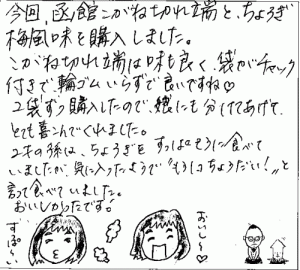 今回、函館こがね切れ端と、ちょろぎ
梅風味を購入しました。
こがね切れ端は味も良く、袋がチャック
付きで、輪ゴムいらずで良いですね♡
2袋ずつ購入したので、娘にも分けてあげて、
とても喜んでくれました。
2才の孫は、ちょろぎを すっぱそうに食べて
いましたが、気に入ったようで“もう1コちょうだい!”と
言って食べていました。
おいしかったです!
すっぱ〜い
おいし〜♡